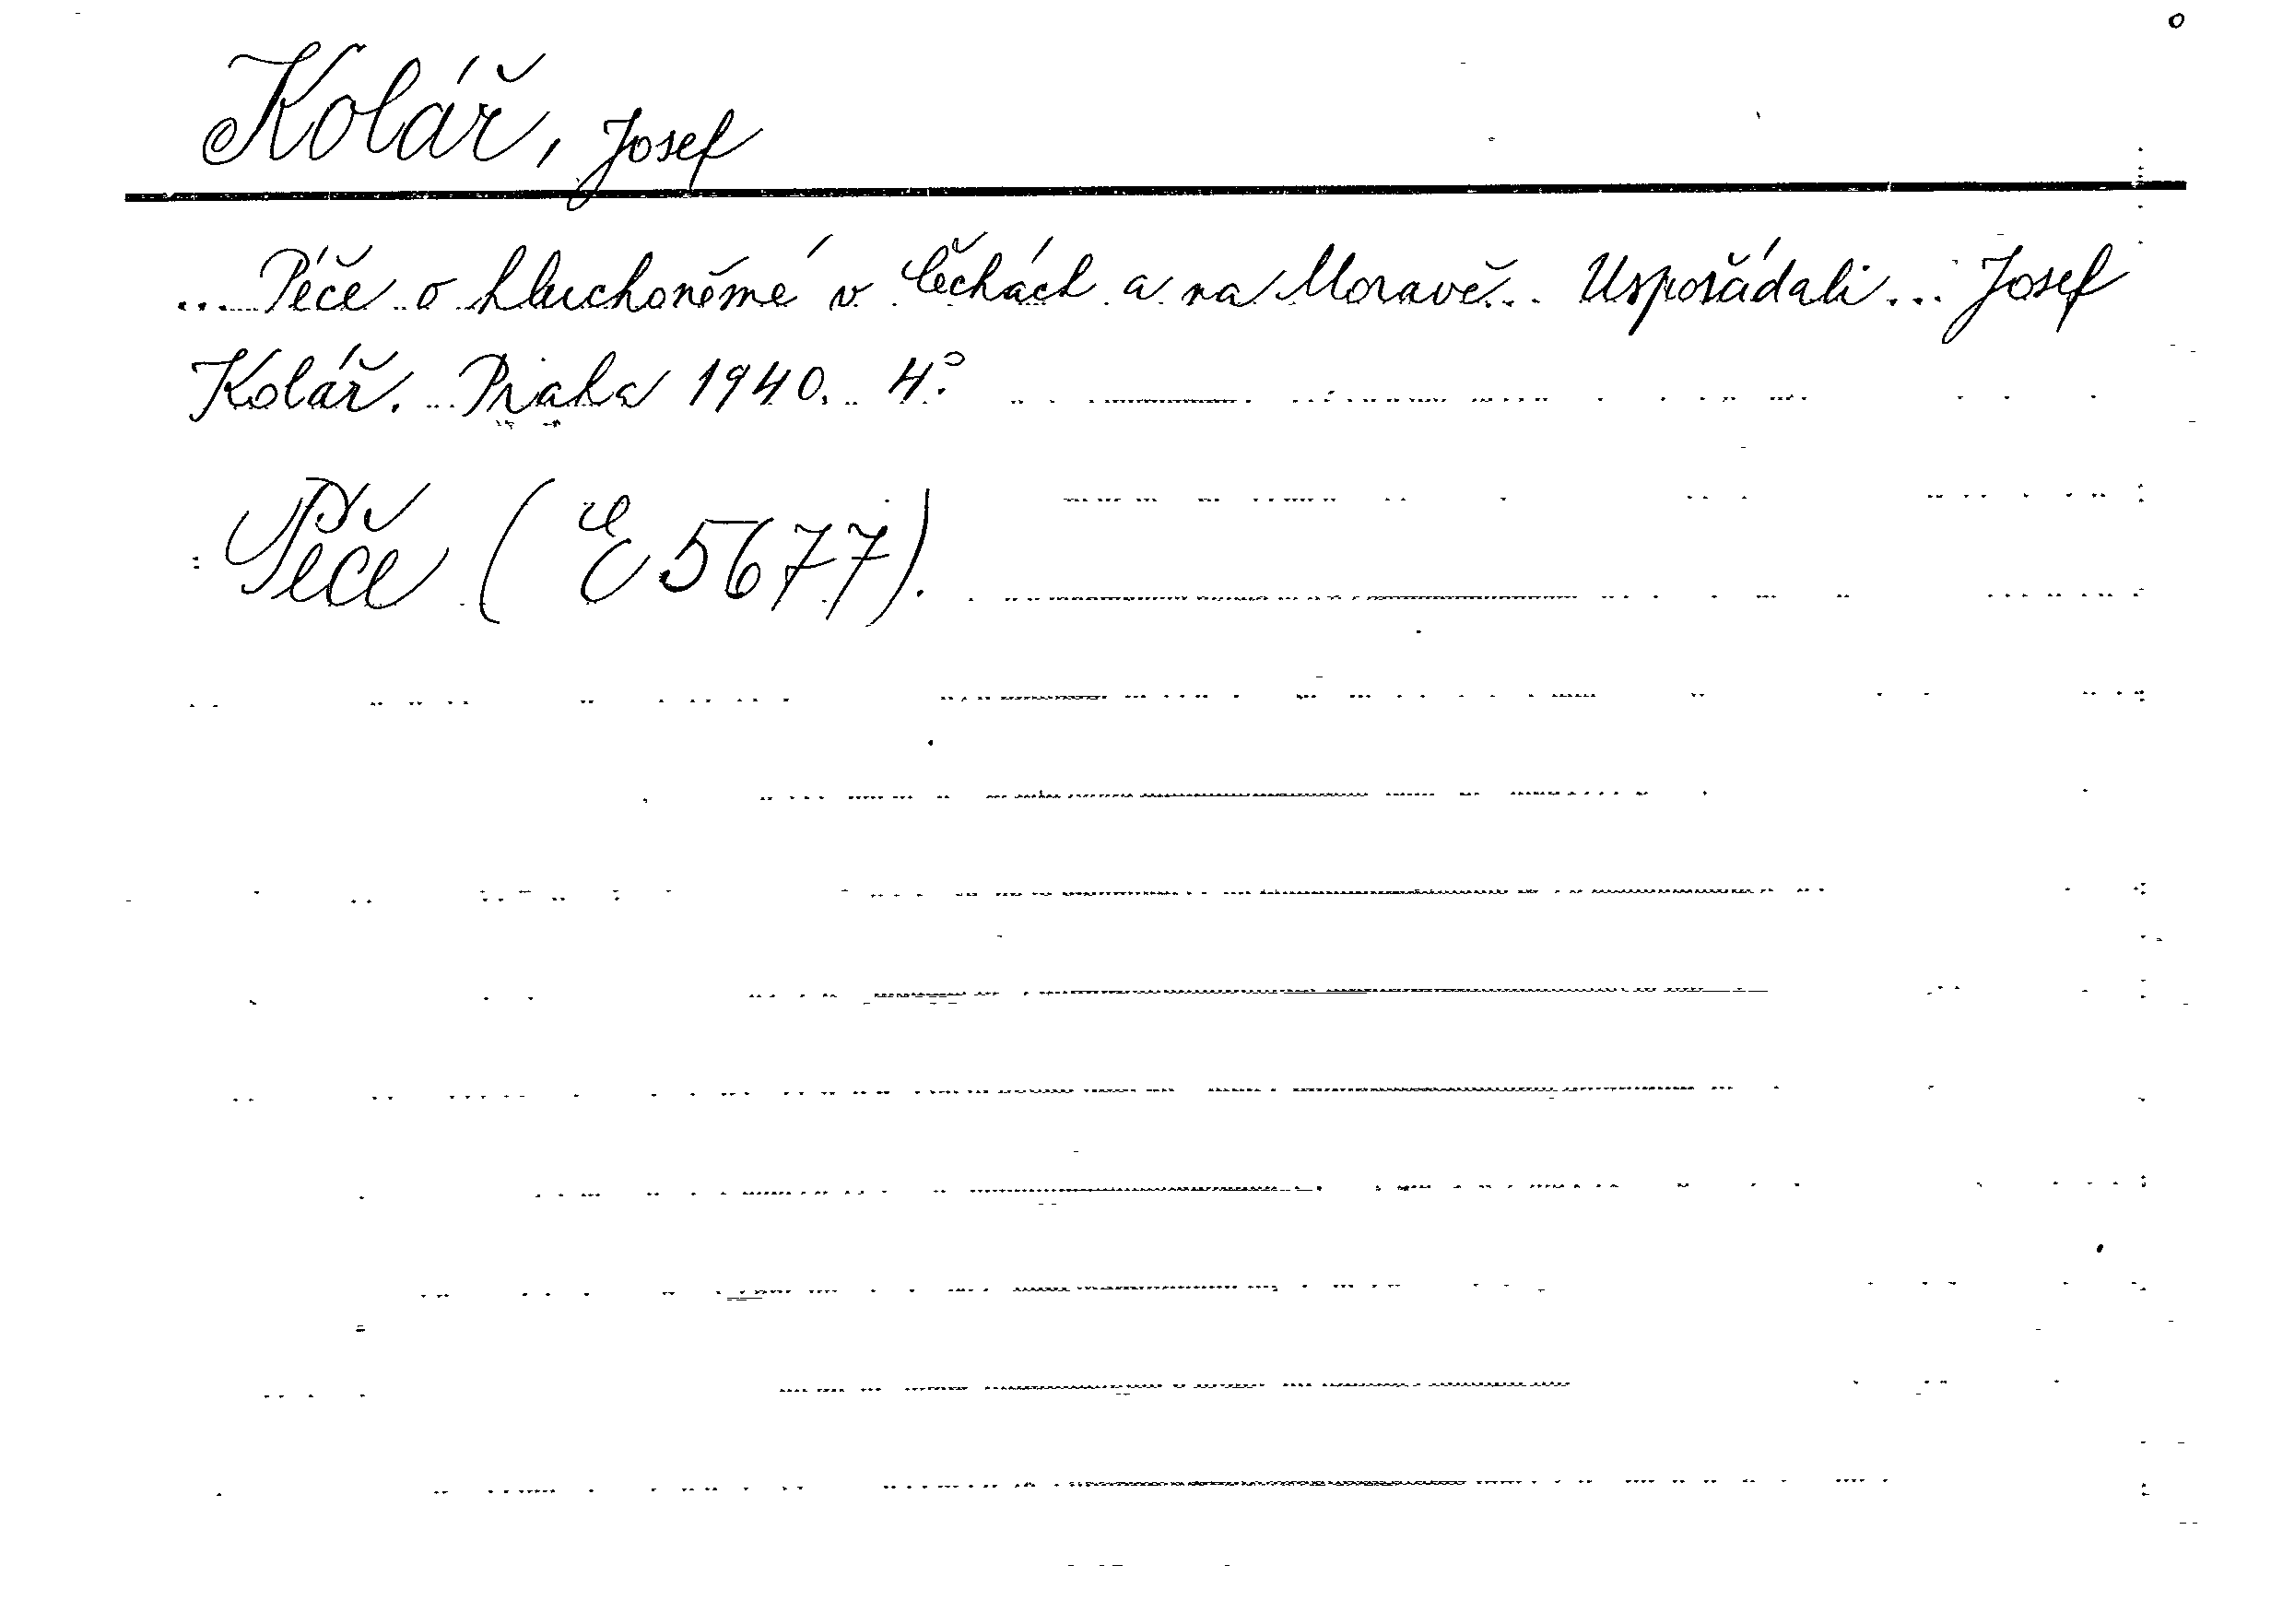 Kolář, Josef
... Péče o hluchoněmé v Čechách a na Moravě... Uspořádali... Josef
Kolář. Praha 1940. 4°.
Péče ( E 5677).